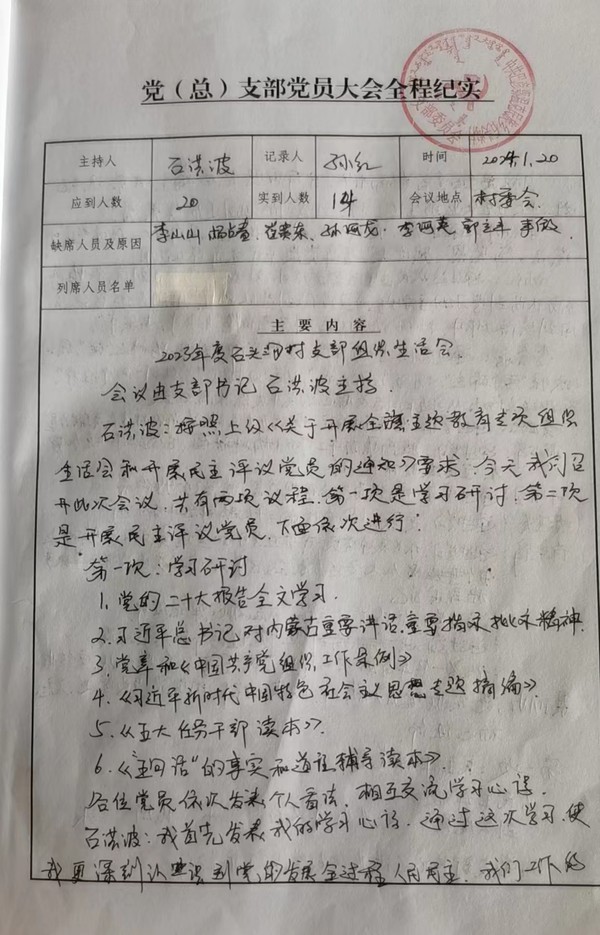 党（总）支部党员大会全程纪实
主持人 石洪波 记录人 孙红 时间 2024.1.20
应到人数 20 实到人数 14 会议地点 村委会
缺席人员及原因 李山山
列席人员名单
主要内容
2023年度石头 村支部组织生活会.
会议由支部书记石洪波主持.
石洪波：按照上级《关于开展 主题教育专项组织
生活会和开展民主评议党员的通知》要求，今天我们召
开此次会议，共有两项议程，第一项是学习研讨，第二次
是开展民主评议党员，下面依次进行：
第一次：学习研讨
1、党的二十大报告全文学习.
2、习近平总书记对内蒙古重要讲话、重要指示批示精神.
3、党章和《中国共产党组织工作条例》
4、《习近平新时代中国特色社会主义思想专题摘编》.
5、《五大任务干部读本》.
6、《“三句话”的事实和道理辅导读本》.
各位党员依次发表个人看法，相互交流学习心得.
石洪波：我首先发表我的学习心得，通过这次学习，使
我更深刻认 识到党的发展全过程人民民主，我们工作的